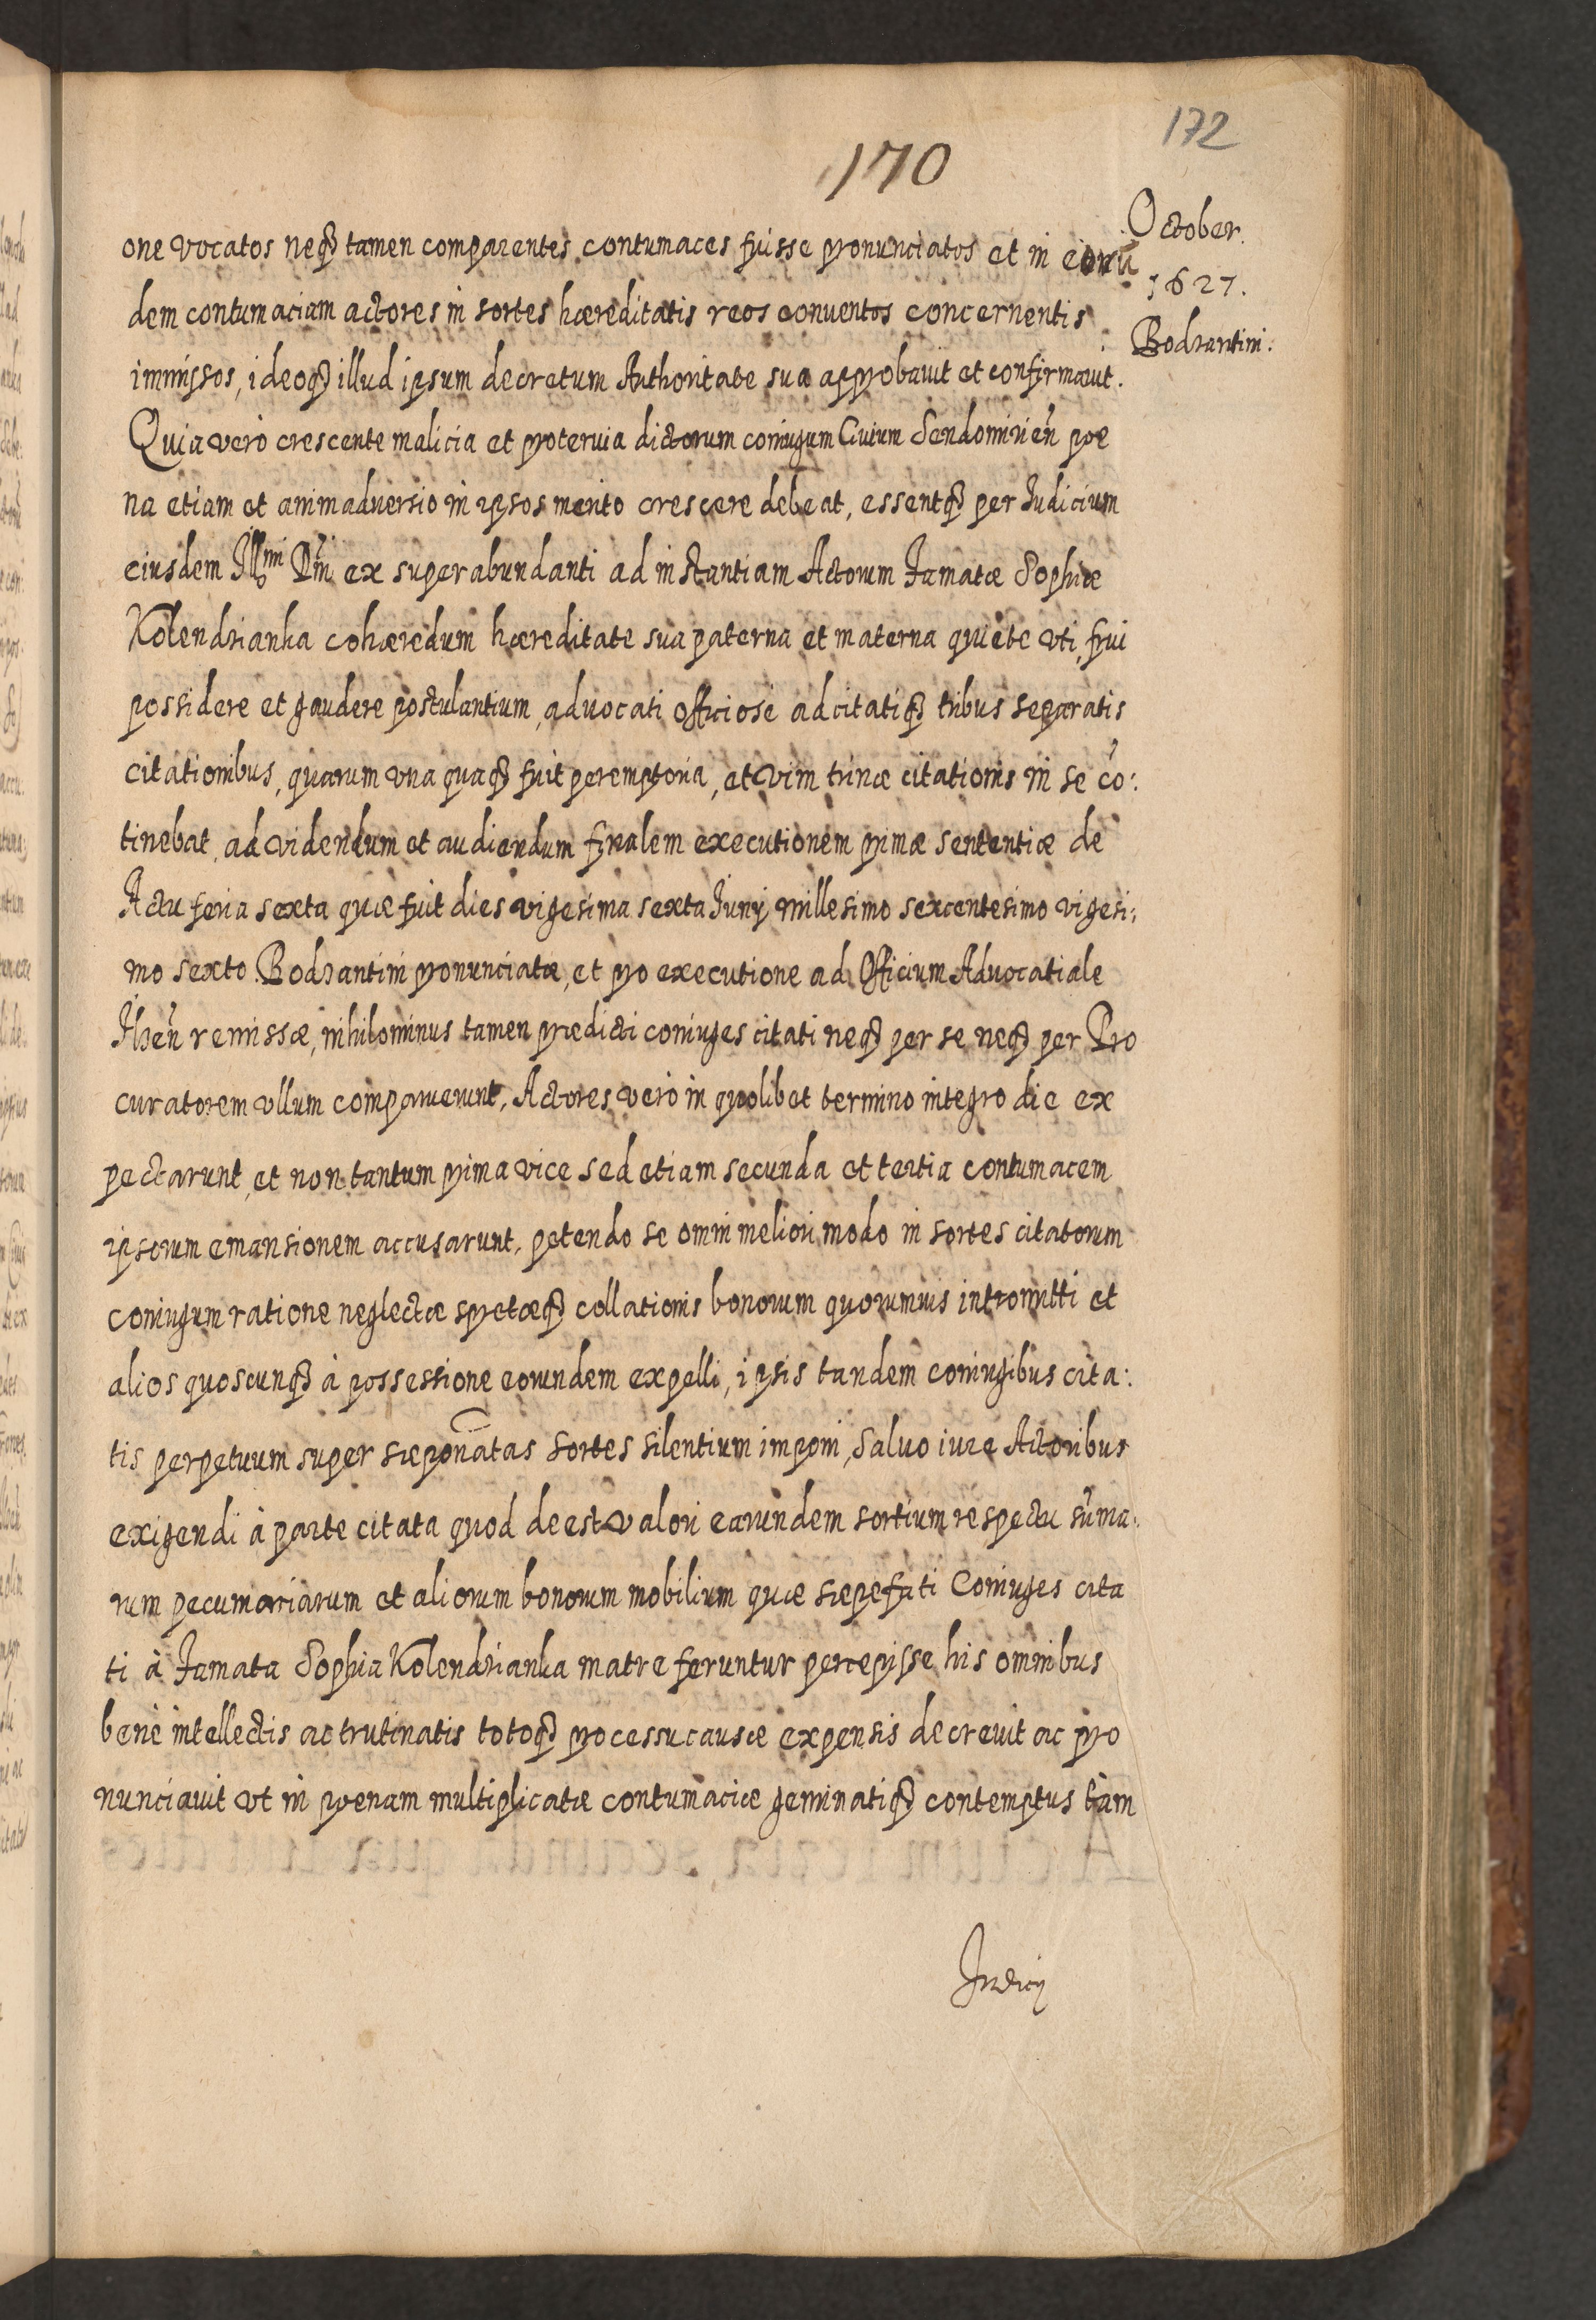 172
170
October.
1627.
Bodzantini.
one vocatos neq3 tamen comparentes contumaces fuisse pronunciatos et in eorũ
dem contumaciam actores in sortes hæreditatis reos conuentos concernentis
immissos, ideoq3 illud ipsum decretum Authoritate sua approbauit et confirmauit.
Quia verò crescente malicia et proteruia dictorum coniugum Ciuium Sendomirien̄ poe
na etiam et animaduersio in ipsos merito crescere debeat, essentq3 per Iudicium
eiusdem Illmi Dn̄i ex superabundanti ad instantiam Actorum Famatæ Sophiæ
Kolendrianka cohæredum hæreditate sua paterna et materna quiete vti, frui
possidere et gaudere postulantium, aduocati officiose adcitatiq3 tribus separatis
citationibus, quarum vna quaq3 fuit peremptoria, et vim trinæ citationis in se cõ:
tinebat, ad videndum et audiendum finalem executionem primæ sententiæ de
Actu feria sexta quæ fuit dies vigesima sexta Iunij millesimo sexcentesimo vigesi:
mo sexto Bodzantini pronunciatæ, et pro executione ad Officium Aduocatiale
Ilzen̄ remissæ, nihilominus tamen prædicti coniuges citati neq3 per se neq3 per Pro
curatorem vllum comparuerunt, Actores verò in quolibet termino integro die ex
pectarunt, et non tantum prima vice sed etiam secunda et tertia contumacem
ipsorum emansionem accusarunt, petendo se omni meliori modo in sortes citatorum
coniugum ratione neglectæ spretæq3 collationis bonorum quorumuis intromitti et
alios quoscunq3 à possessione eorundem expelli, ipsis tandem coniugibus cita:
tis perpetuum super sæpenõatas sortes silentium imponi, Saluo iure Actoribus
exigendi à parte citata quod deest valori earundem sortium respectu sum̃a:
rum pecuniariarum et aliorum bonorum mobilium quæ sæpefati Coniuges cita
ti à Famata Sophia Kolendrianka matre feruntur percepisse his omnibus
benè intellectis ac trutinatis totoq3 processu causæ expensis decreuit ac pro
nunciauit vt in poenam multiplicatæ contumaciæ geminatiq3 contemptus tàm
Iudicij